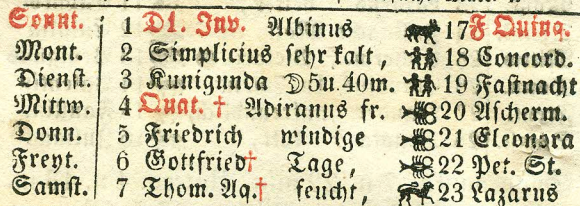 Sonnt. 1 D1. Inv. Albinus 17 F Quinq.
Mont. 2 Simplicius sehr kalt, 18 Concord.
Dienst. 3 Kunigunda ☽5u.40m. 19 Fastnacht
Mittw. 4 Quat. † Adrianus fr. 20 Ascherm.
Donn. 5 Friedrich windige 21 Eleonora
Freyt. 6 Gottfried† Tage, 22 Pet. St.
Samst. 7 Thom. Aq.† feucht, 23 Lazarus